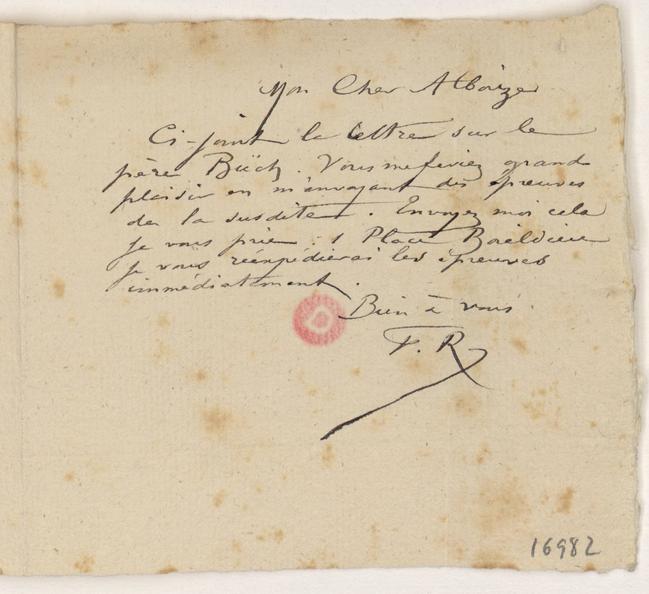 Mon Cher Alboize
Ci-joint la lettre sur le
père Büch. Vous me feriez grand
plaisir en m'envoyant des épreuves
de la susdite. Envoyez moi cela
je vous prie : 1 Place Boieldieu
Je vous réexpédierai les épreuves
immédiatement.
Bien à vous.
F. R
16982